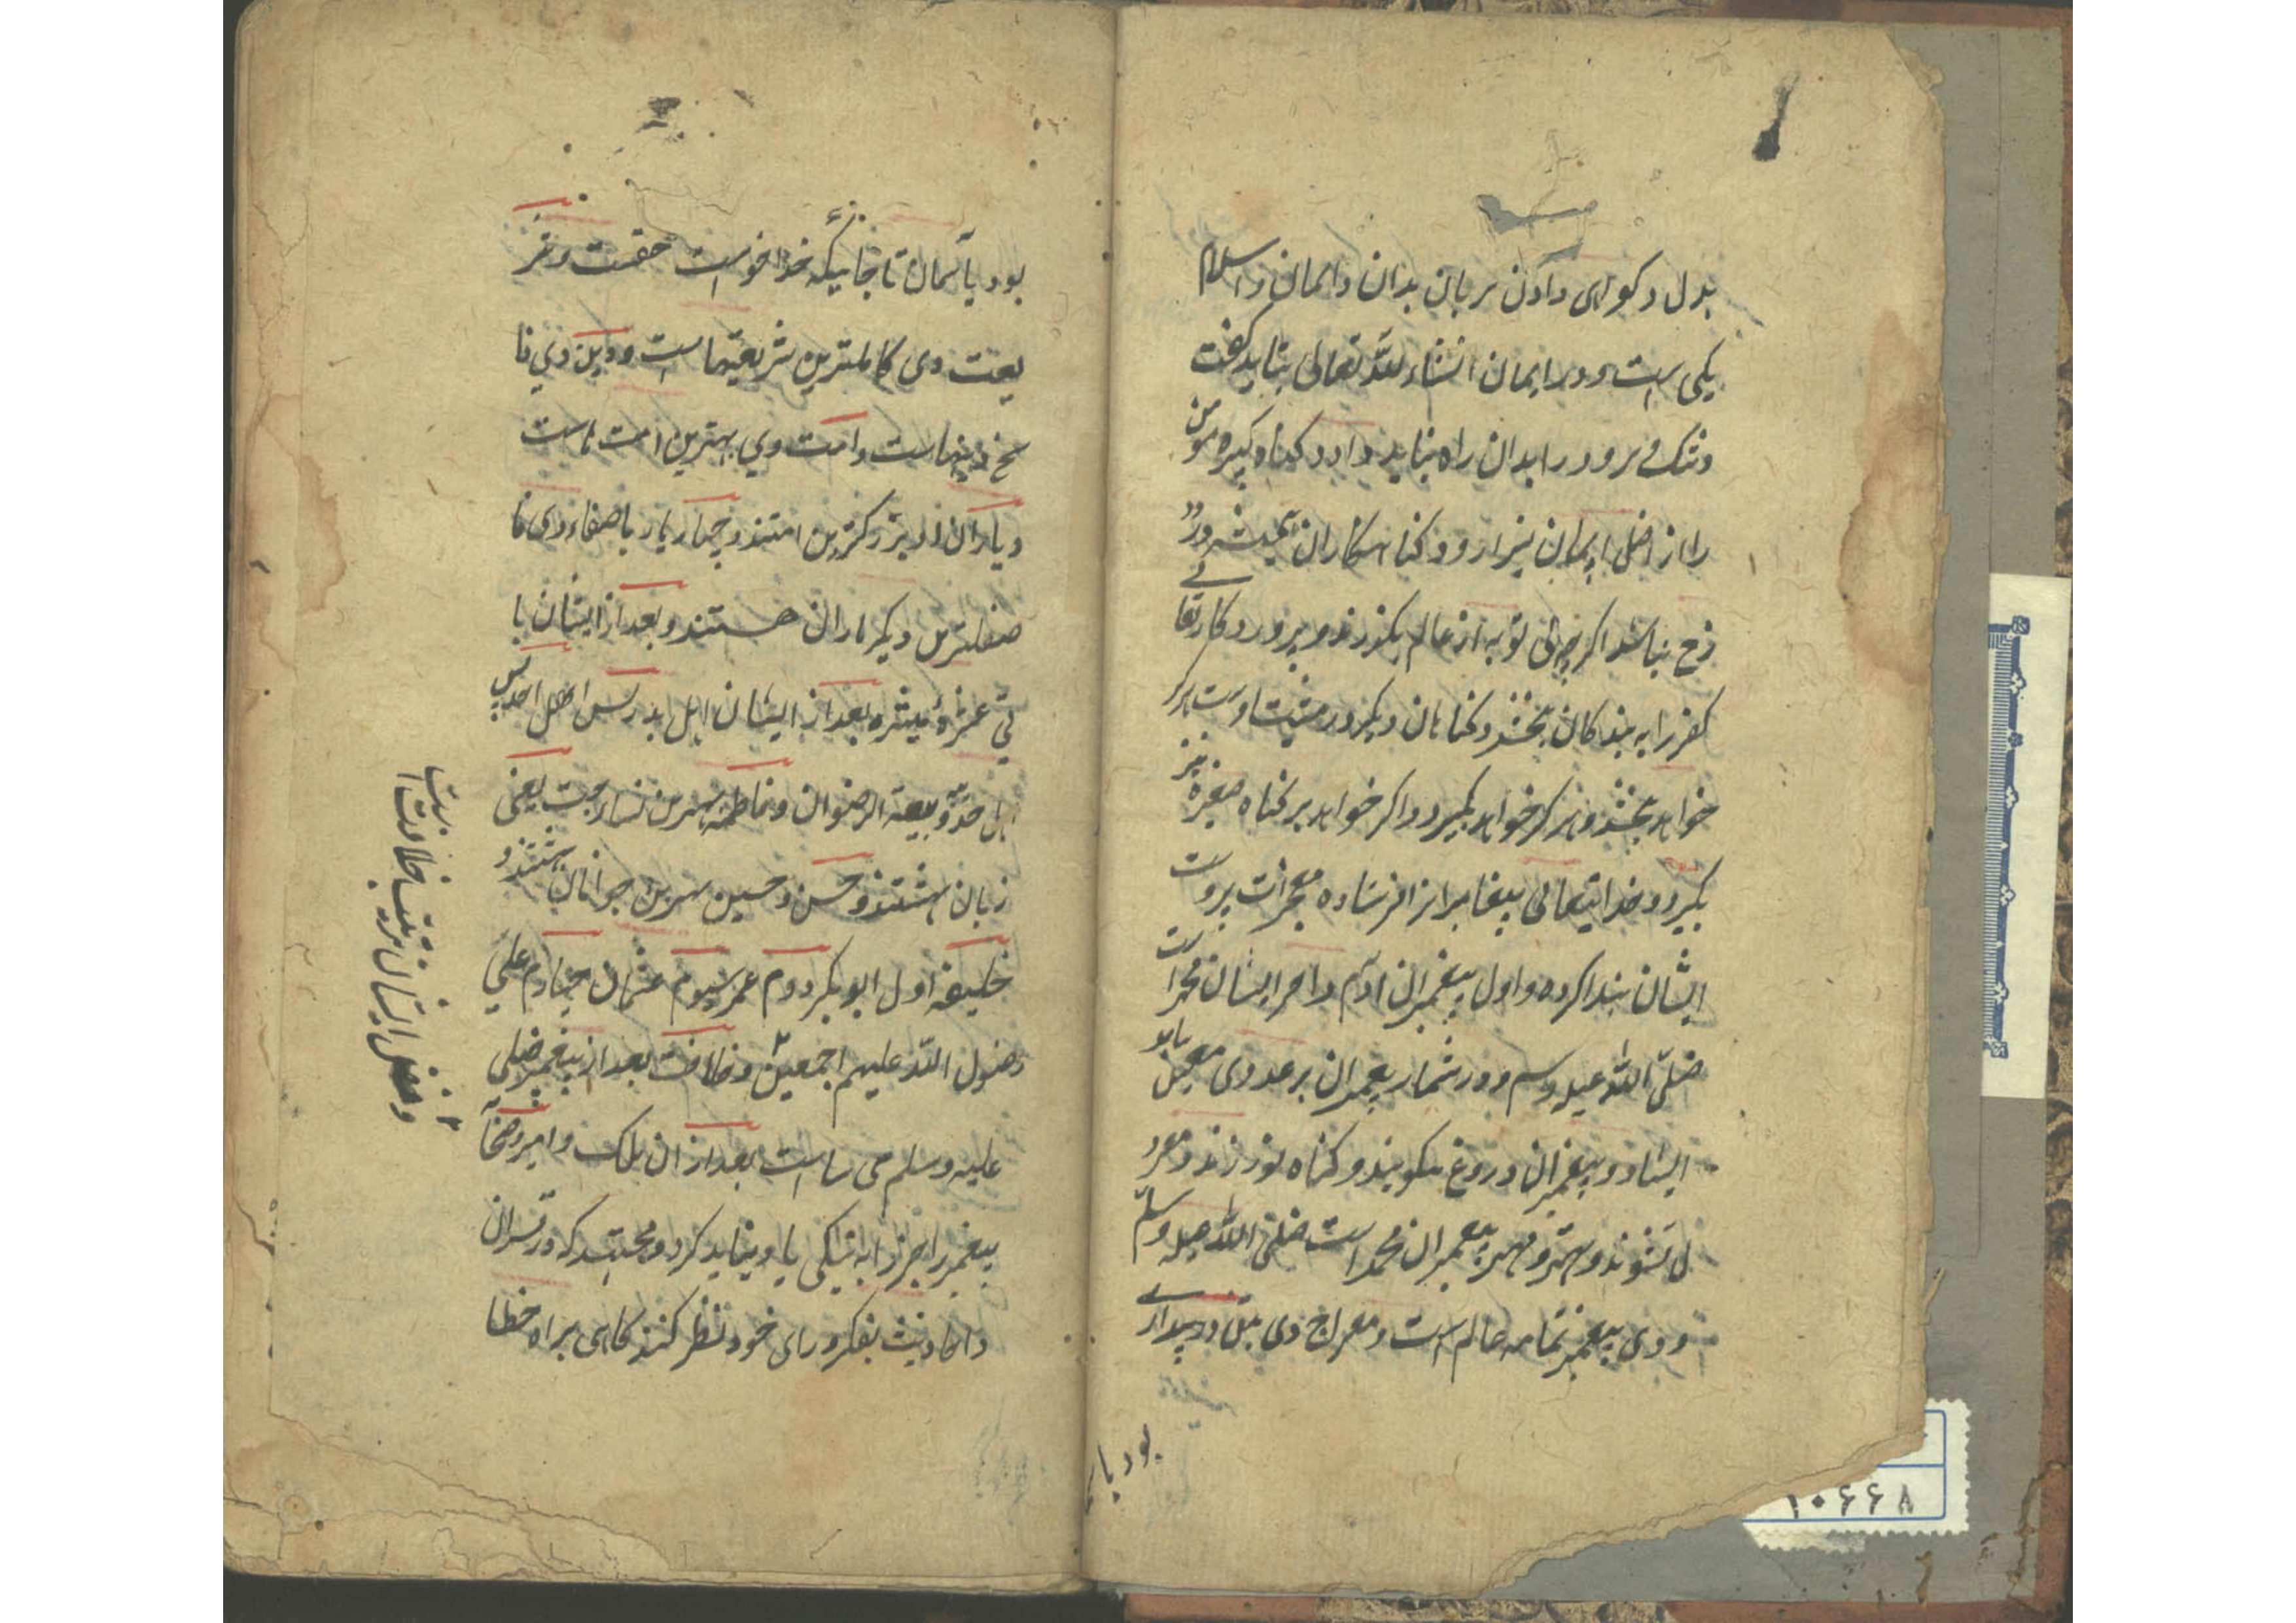 بدل و کواهی دادن بزبان بدان و ایمان و اسلام
یکی است و در ایمان انشاء الله تعالی نباید کفت
و شک و بروو را بدان راه نباید داد و کناه کبیره مومن
را از اصل ایمان بیرارو و کناهکاران همیشه در دو
زخ نباشد اکرچه بی توبه از عالم بکذرند و پروردکار تعالے
کفر را به بندکان نبخشد و کناهان دیکر در مشیت اوست هرکر
خواهد بخشد و هرکر خواهد بکیرد و اکر خواهد بر کناه صغیره نیز
بکیرد و خدایتعالی پیغامبرانرا فرستاده معجزات بر دست
ایشان پیدا کرده و اول پیغمبران آدم و آخر ایشان محمد است
صلی الله علیه وسلم و در شمار پیغمبران بر عددی معین نباید
ایستاد و پیغمبران دروغ نکویند و کناه نورزند و معزو
ل نشوند و بهتر و مهتر پیغمبران محمد است صلی الله علیه وسلم
و وی پیغمبر تمامه عالم است و معراج وی بتن در بیدارے
بود بآ
بود بآسمان تا جائیکه خدا خواست حقست و شر
یعت وی کاملترین شریعتهاست و دین وی نا
سخ دینهاست و امت وی بهترین امت هاست
و یاران او بزرکترین امتند و چهار یار باصفاء وی فا
ضلترین دیکر یاران هستند و بعد از ایشان با
قی عشرهٔ مبشره بعد از ایشان اهل بدر پس اهل احد پس
اهل حد بیعة الرضوان و فاطمه بهترین نساء جنت یعنی
زنان بهشتند و حسن و حسین بهترین جوانان بهشتند و
خلیفه اول ابوبکر دوم عمر سیوم عثمان چهارم علی
رضوان الله علیهم اجمعین و خلافت بعد از پیغمبر صلی
علیه وسلم سی سال است بعد از ان ملک و امیر و صحابا
پیغمبر را بجز از به نیکی یاد نباید کرد و مجتهد که در قران
و احادیث بفکر و رای خود نظر کنند کاهی براه خطا
و فضل ایشان بترتیب خلافت است